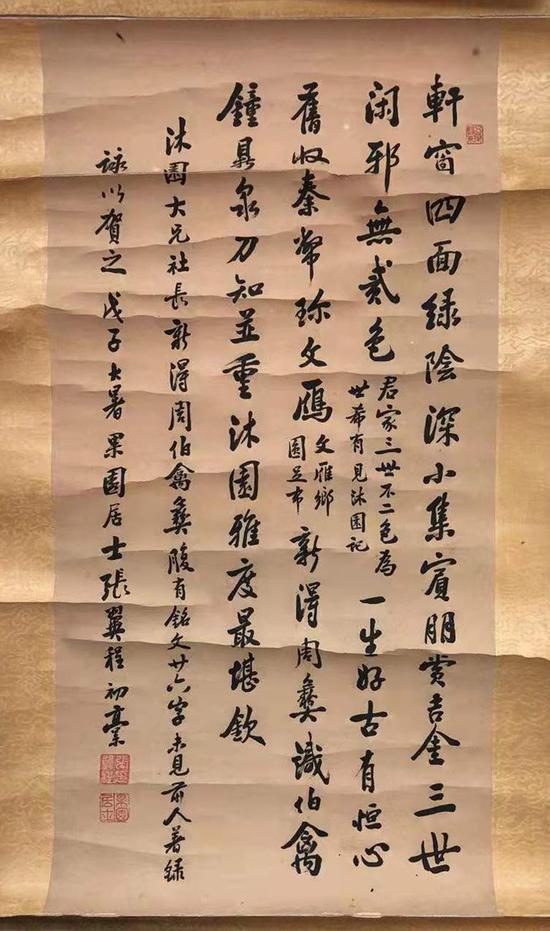 軒窗四面緑陰深小集賓朋賞吉金三世
閑邪無貳色
君家三世不二色為
世希有見沐園記
一生好古有恒心
舊收秦幣珎文鴈
文雁鄉
圓足布
新得周彝識伯禽
鐘鼎泉刀知並重沐園雅度最堪欽
沐園大兄社長新得周伯禽彝腹有銘文廿六字未見前人著録
詠以賀之 戊子大暑 果園居士張翼程初稾